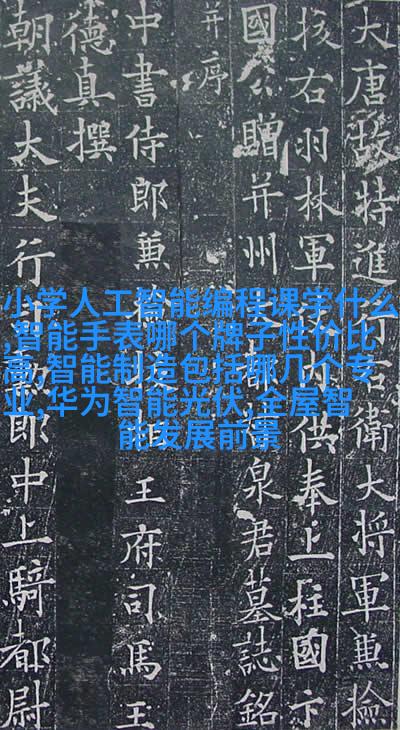 大唐故特進行右衛大將軍兼撿
挍右羽林軍仗內供奉上柱國卞
國公贈并州大都督泉君墓誌銘
并序
中書侍郎兼檢校相王府司馬王
德真撰
朝議大夫行郎中上騎都尉
小学人工智能编程课学什么
,智能手表哪个牌子性价比
高,智能制造包括哪几个专
业,华为智能光伏,全屋智
能发展前景